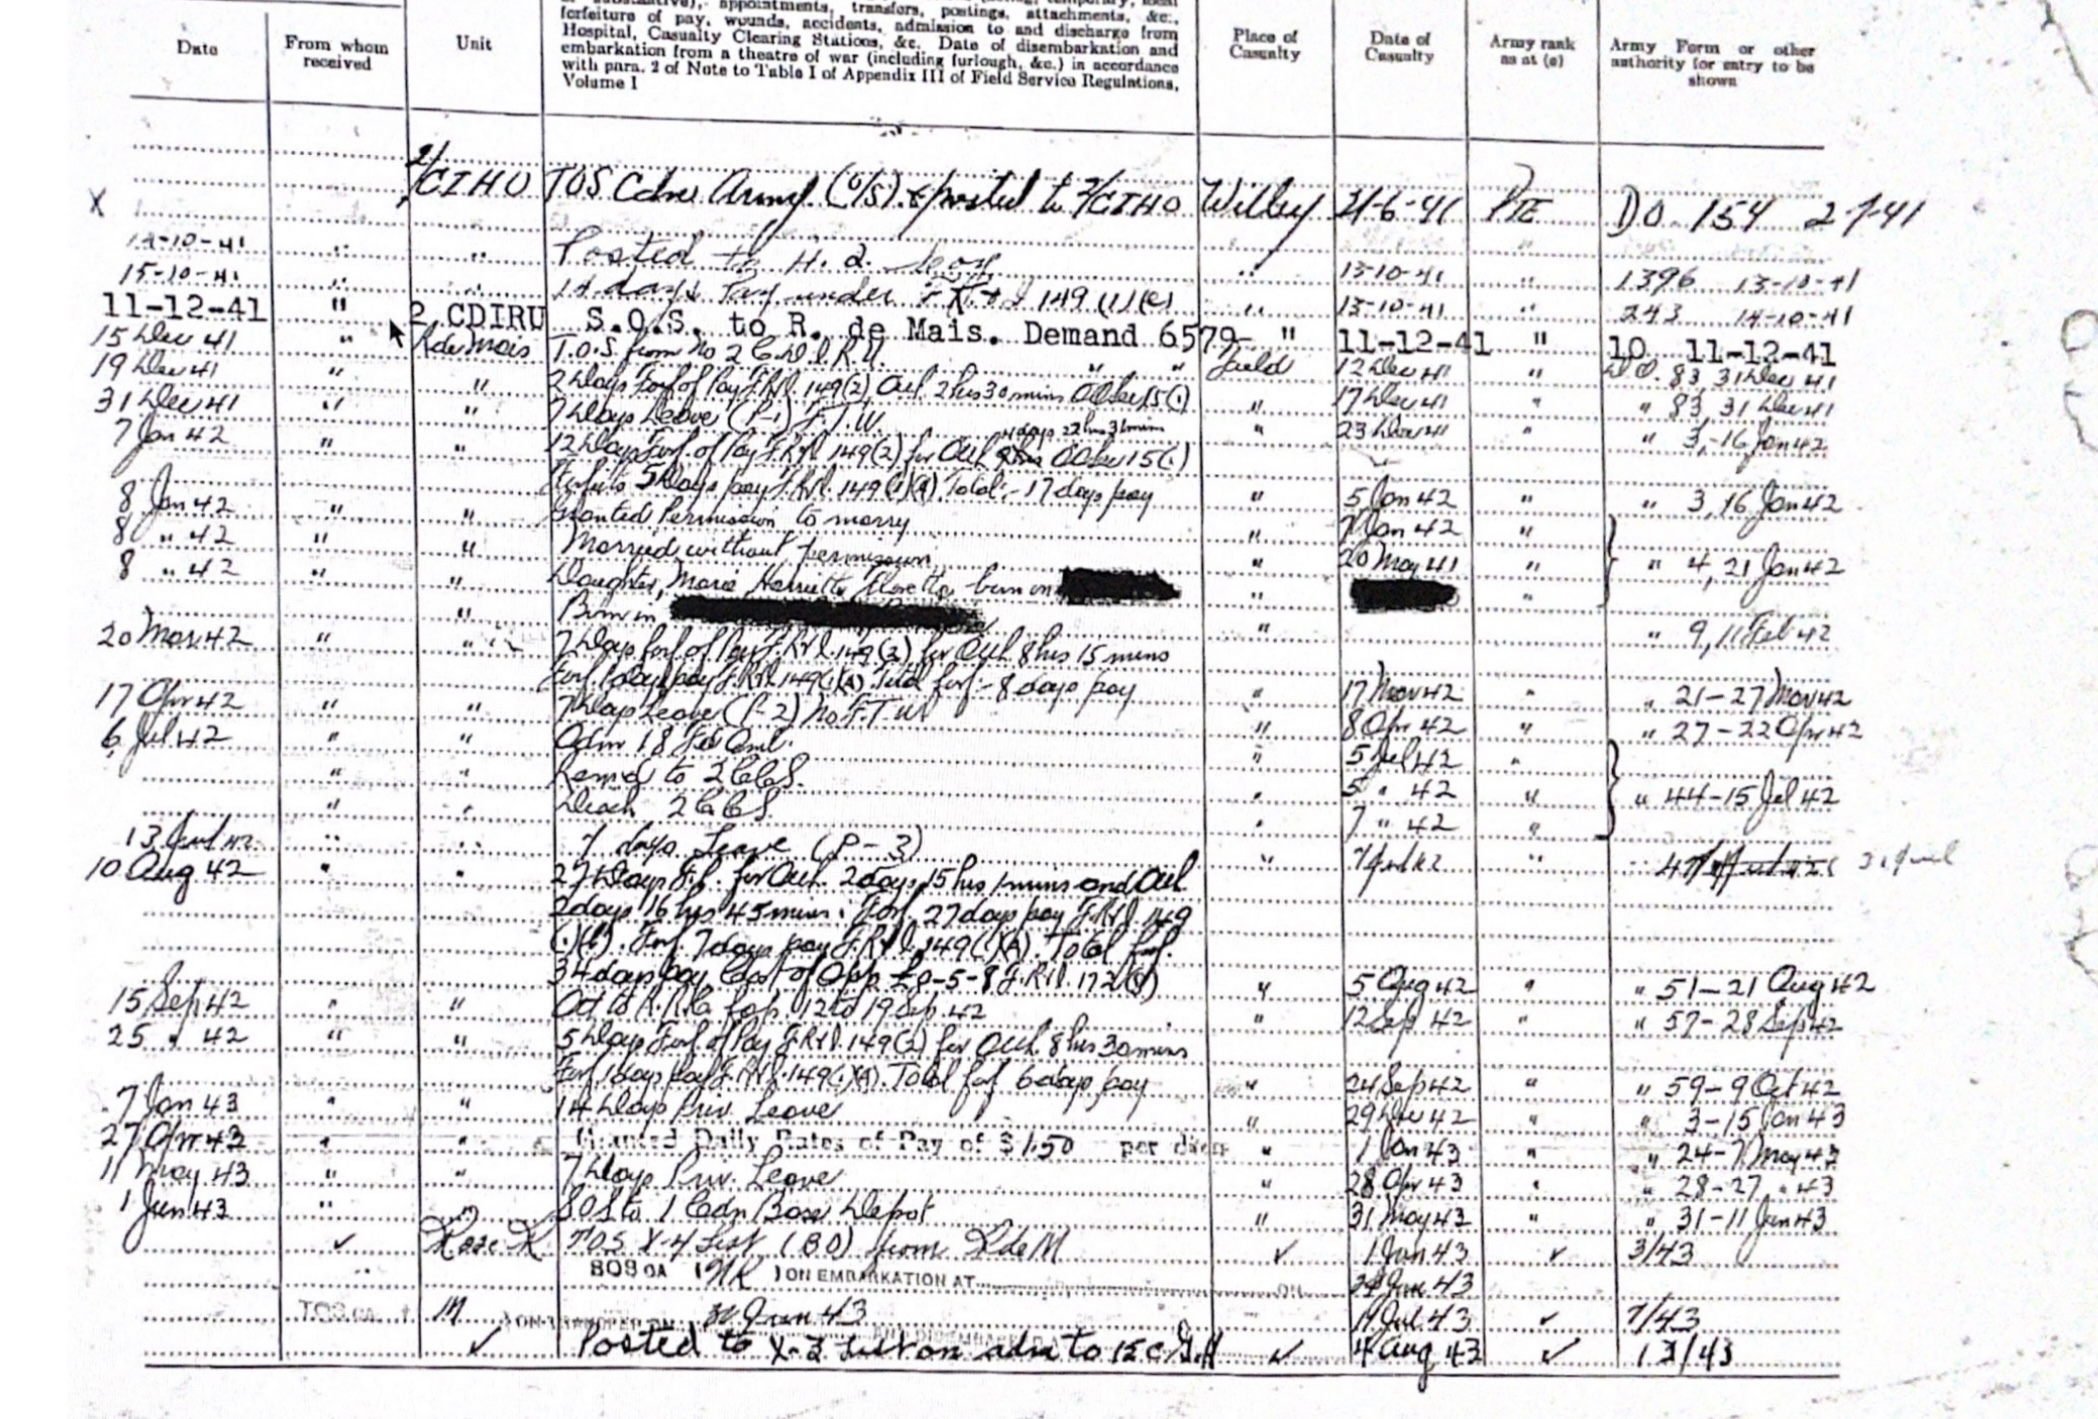 or substantive), appointments, transfers, postings, attachments, &c.,
forfeiture of pay, wounds, accidents, admission to and discharge from
Hospital, Casualty Clearing Stations, &c. Date of disembarkation and
embarkation from a theatre of war (including furlough, &c.) in accordance
with para. 2 of Note to Table I of Appendix III of Field Service Regulations,
Volume I
Date
From whom received
Unit
Place of Casualty
Date of Casualty
Army rank as at (e)
Army Form or other authority for entry to be shown
2/CIHU TOS Cdn Army (O/S) & posted to 2/CIHU Witley 21-6-41 PTE D.O. 154 2-7-41
X
14-10-41 " " Posted to H.Q. " 13-10-41 " 1396 13-10-41
15-10-41 " " 14 days Pay under 149 (1)(c) " 13-10-41 " 243 14-10-41
11-12-41 " 2 CDIRU S.O.S. to R. de Mais. Demand 6579 - " 11-12-41 " 10 11-12-41
15 Dec 41 " R de Mais T.O.S. from No 2 C.D.I.R.U. Field 12 Dec 41 " D.O. 83, 31 Dec 41
19 Dec 41 " " 2 Days Forf of Pay F.R.&I. 149(2), awl 2 hrs 30 mins 17 Dec 41 " " 83, 31 Dec 41
31 Dec 41 " " 7 Days Leave (P-1) F.T.W. " 23 Dec 41 " " 3, 16 Jan 42
4 days 22 hrs 31 mins
7 Jan 42 " " 12 Days Forf. of Pay F.R.&I. 149(2) for awl
Forfeits 5 Days pay F.R.&I. 149(1)(A) Total - 17 days pay " 5 Jan 42 " " 3, 16 Jan 42
8 Jan 42 " " Granted Permission to marry " 7 Jan 42 "
8 " 42 " " Married without permission " 20 May 41 " " 4, 21 Jan 42
8 " 42 " " Daughter, Marie Henriette born on " "
" Born in " " 9, 11 Feb 42
20 Mar 42 " " 7 Days forf of Pay F.R.&I. 149(2) for awl 8 hrs 15 mins
Forf. 1 days pay F.R.&I. 149(1)(A) Total forf - 8 days pay " 17 Mar 42 " " 21-27 Mar 42
17 Apr 42 " " 7 Days Leave (P-2) No F.T.W. " 8 Apr 42 " " 27-22 Apr 42
6 Jul 42 " " Adm 18 Fd Amb. " 5 Jul 42 "
" " Remd to 2 CCS. " 5 " 42 " " 44-15 Jul 42
" " Disch 2 CCS. " 7 " 42 "
13 Jul 42 " " 7 days Leave (P-3) " 7 Jul 42 " 47 31 Jul
10 Aug 42 " " 27 Days F.P. for awl. 2 days 15 hrs 1 mins and awl
2 days 16 hrs 45 mins. Forf. 27 days pay F.R.&I. 149
(1)(b). Forf. 7 days pay F.R.&I. 149(1)(A). Total forf.
34 days pay Cost of App £0-5-8 F.R.&I. 172 " 5 Aug 42 " " 51-21 Aug 42
15 Sep 42 " " 12 to 19 Sep 42 " 12 Sep 42 " " 57-28 Sep 42
25 " 42 " " 5 Days Forf. of Pay F.R.&I. 149(2) for awl 8 hrs 30 mins
Forf 1 days pay F.R.&I. 149(1)(A). Total forf 6 days pay " 24 Sep 42 " " 59-9 Oct 42
7 Jan 43 " " 14 Days Priv. Leave " 29 Dec 42 " " 3-15 Jan 43
27 Apr 43 " " Granted Daily Rates of Pay of $1.50 per diem " 1 Jan 43 " " 24-7 May 43
11 May 43 " " 7 Days Priv. Leave " 28 Apr 43 " " 28-27 " 43
1 Jun 43 " " SOS to 1 Cdn Base Depot " 31 May 43 " " 31-11 Jun 43
✓ TOS X-4 List (BD) from R de M ✓ 1 Jun 43 ✓ 3/43
SOS CA ( NR ) ON EMBARKATION AT ON 24 Jun 43
TOS CA ( M ) ON TRANSFER ON Jun 43 AND DISEMBARKED AT 11 Jul 43 ✓ 7/43
✓ Posted to X-3 List on adm to 15 C.G.H ✓ 4 Aug 43 ✓ 13/43